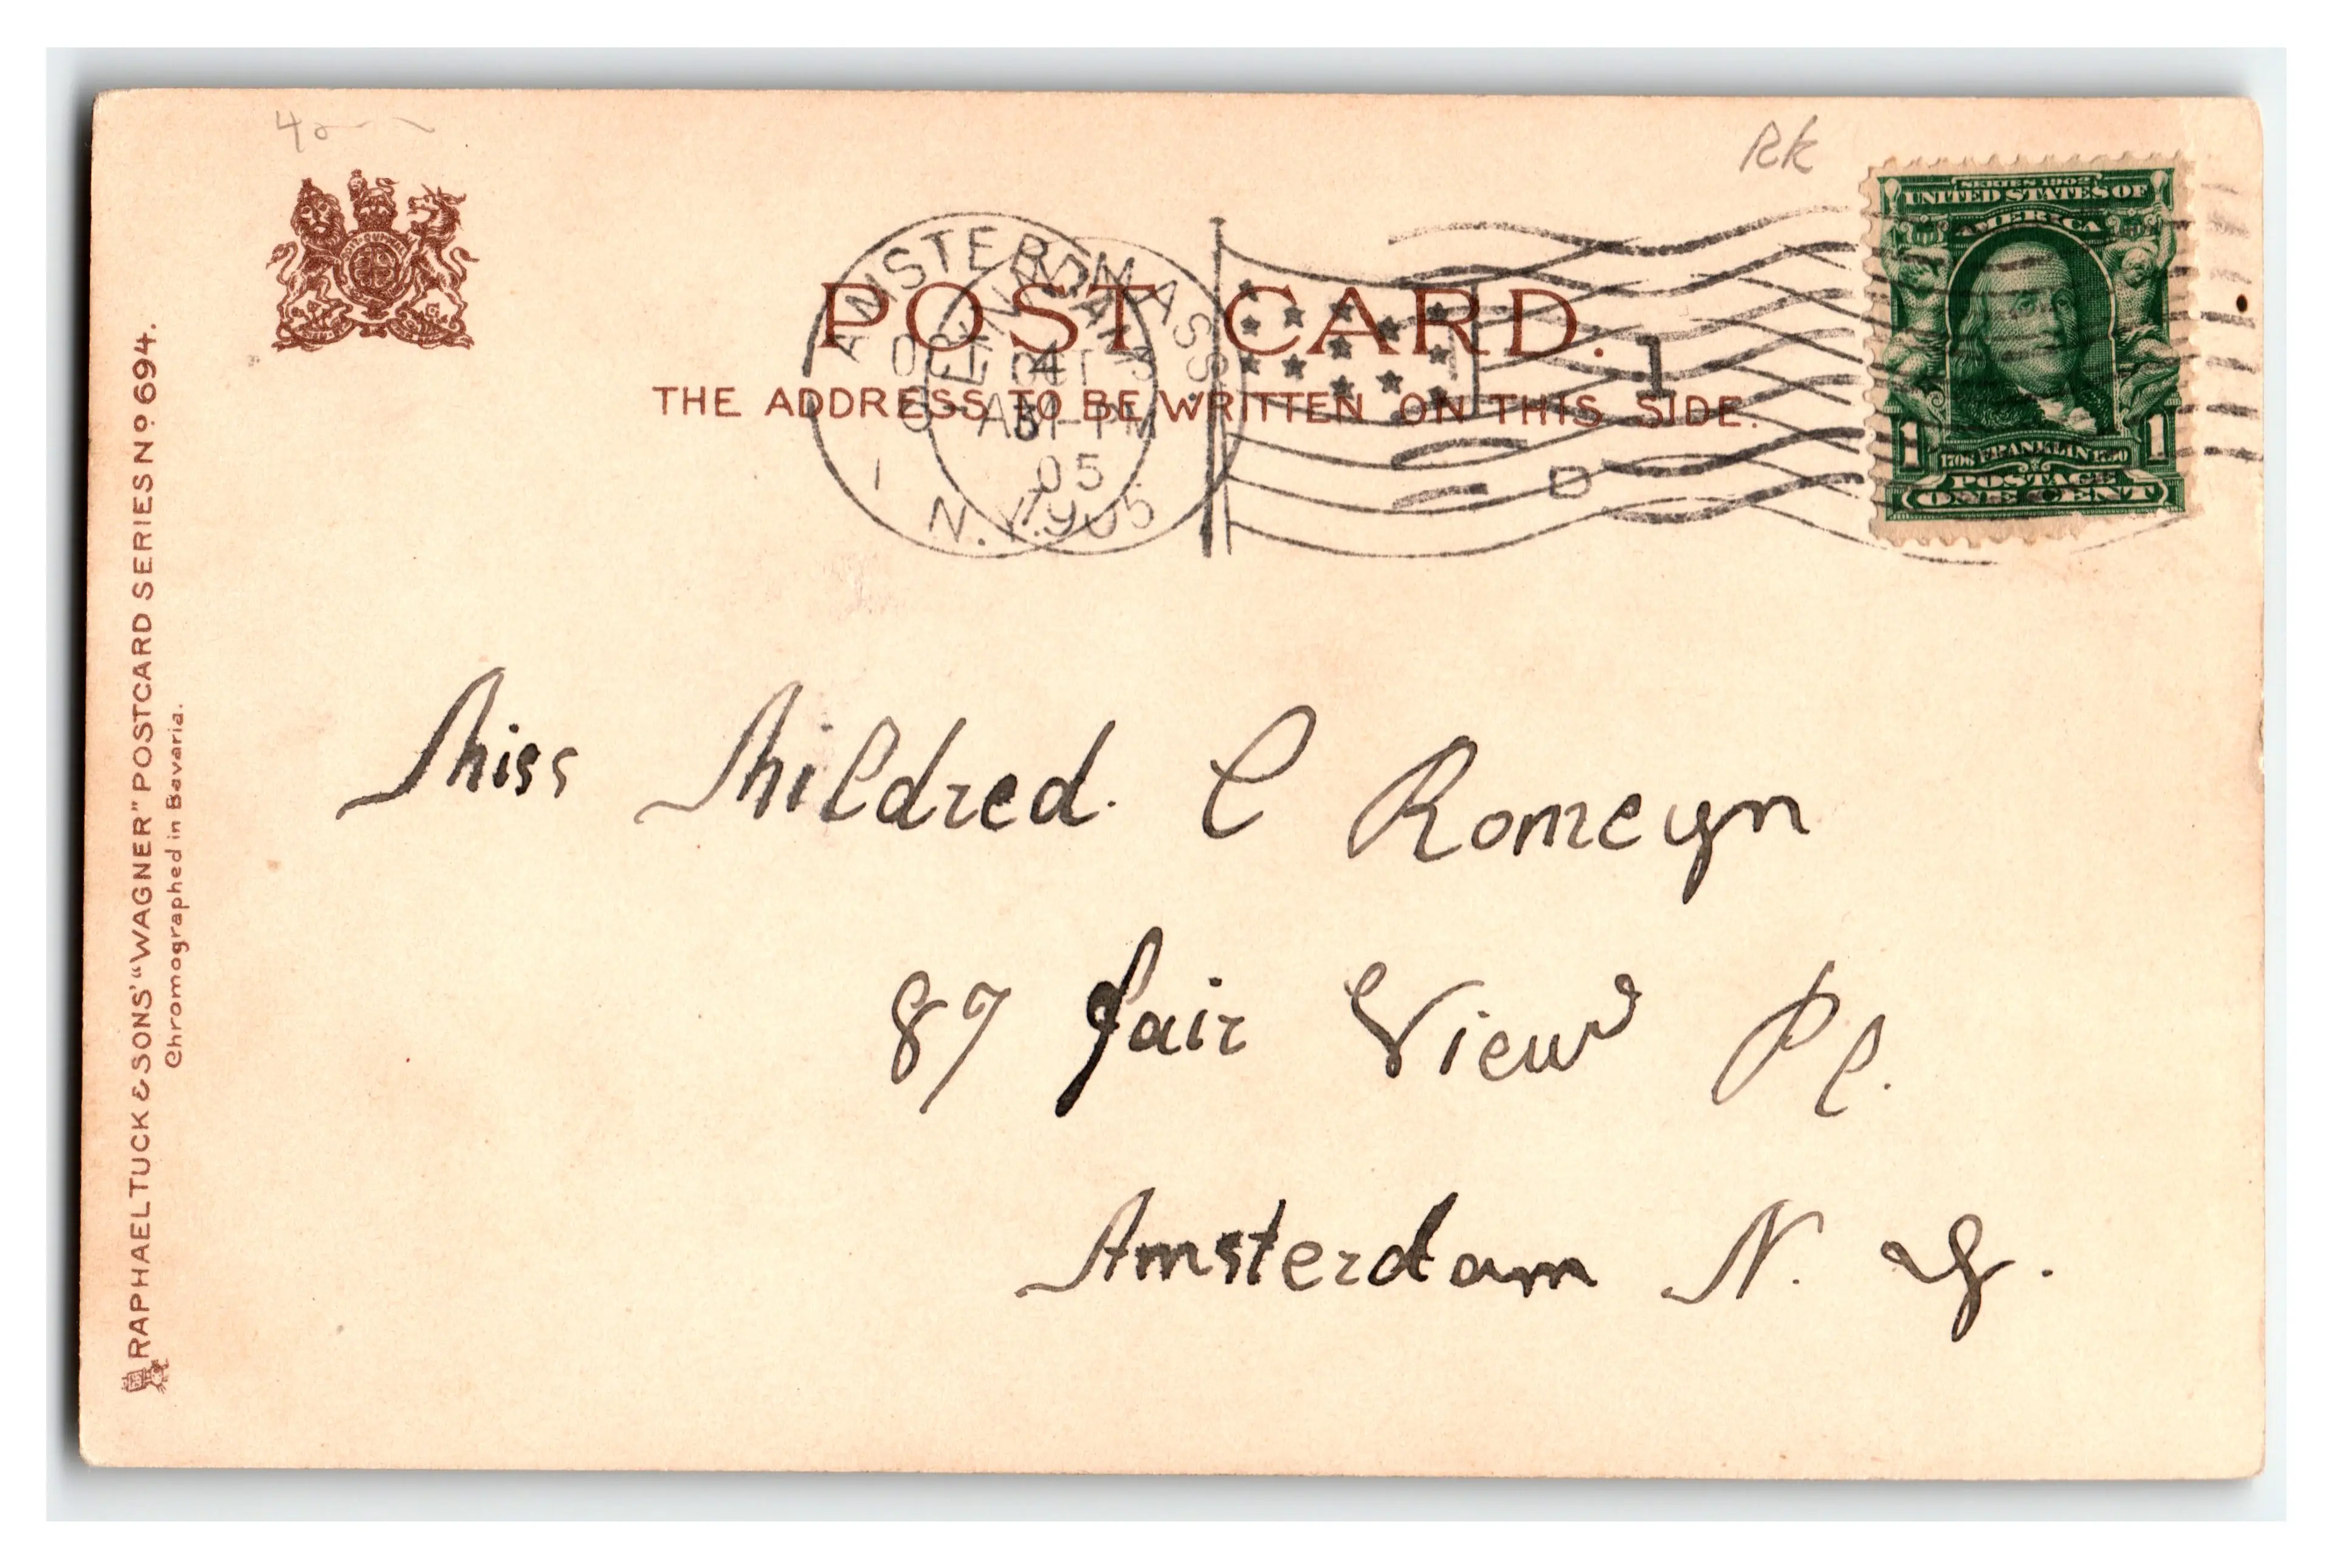 Rk
SERIES 1902
UNITED STATES OF
AMERICA
1706 FRANKLIN 1790
1 1
POSTAGE
ONE CENT
AMSTERDAM
OCT 4
AM
05
N.Y.
MASS.
OCT 3
PM
1905
1
D
POST CARD.
THE ADDRESS TO BE WRITTEN ON THIS SIDE.
RAPHAEL TUCK & SONS' "WAGNER" POSTCARD SERIES No 694.
Chromographed in Bavaria.
Miss Mildred. C Romeyn
87 Fair View Pl.
Amsterdam N. Y.